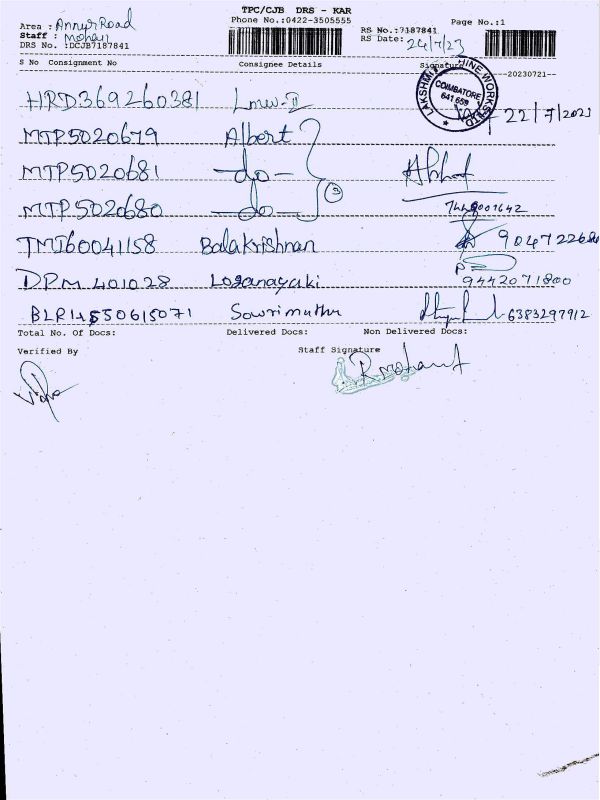 TPC/CJB DRS - KAR
Area : Annur Road Phone No.:0422-3505555 Page No.:1
Staff : mohan RS No.:7187841
DRS No. :DCJB7187841 RS Date: 24/7/23
S No Consignment No Consignee Details Signature --20230721--
LAKSHMI MACHINE WORKS LTD
COIMBATORE
641 659
HRD369260381 Lmw-II 22/7/2023
MTP5020679 Albert
MTP5020681 -do-
MTP5020680 -do- 3
TMJ60041158 Balakrishnan
DPM401028 Loganayaki 9442071800
Sowrimuthu 6383297912
Total No. Of Docs: Delivered Docs: Non Delivered Docs:
Verified By Staff Signature
R mohan